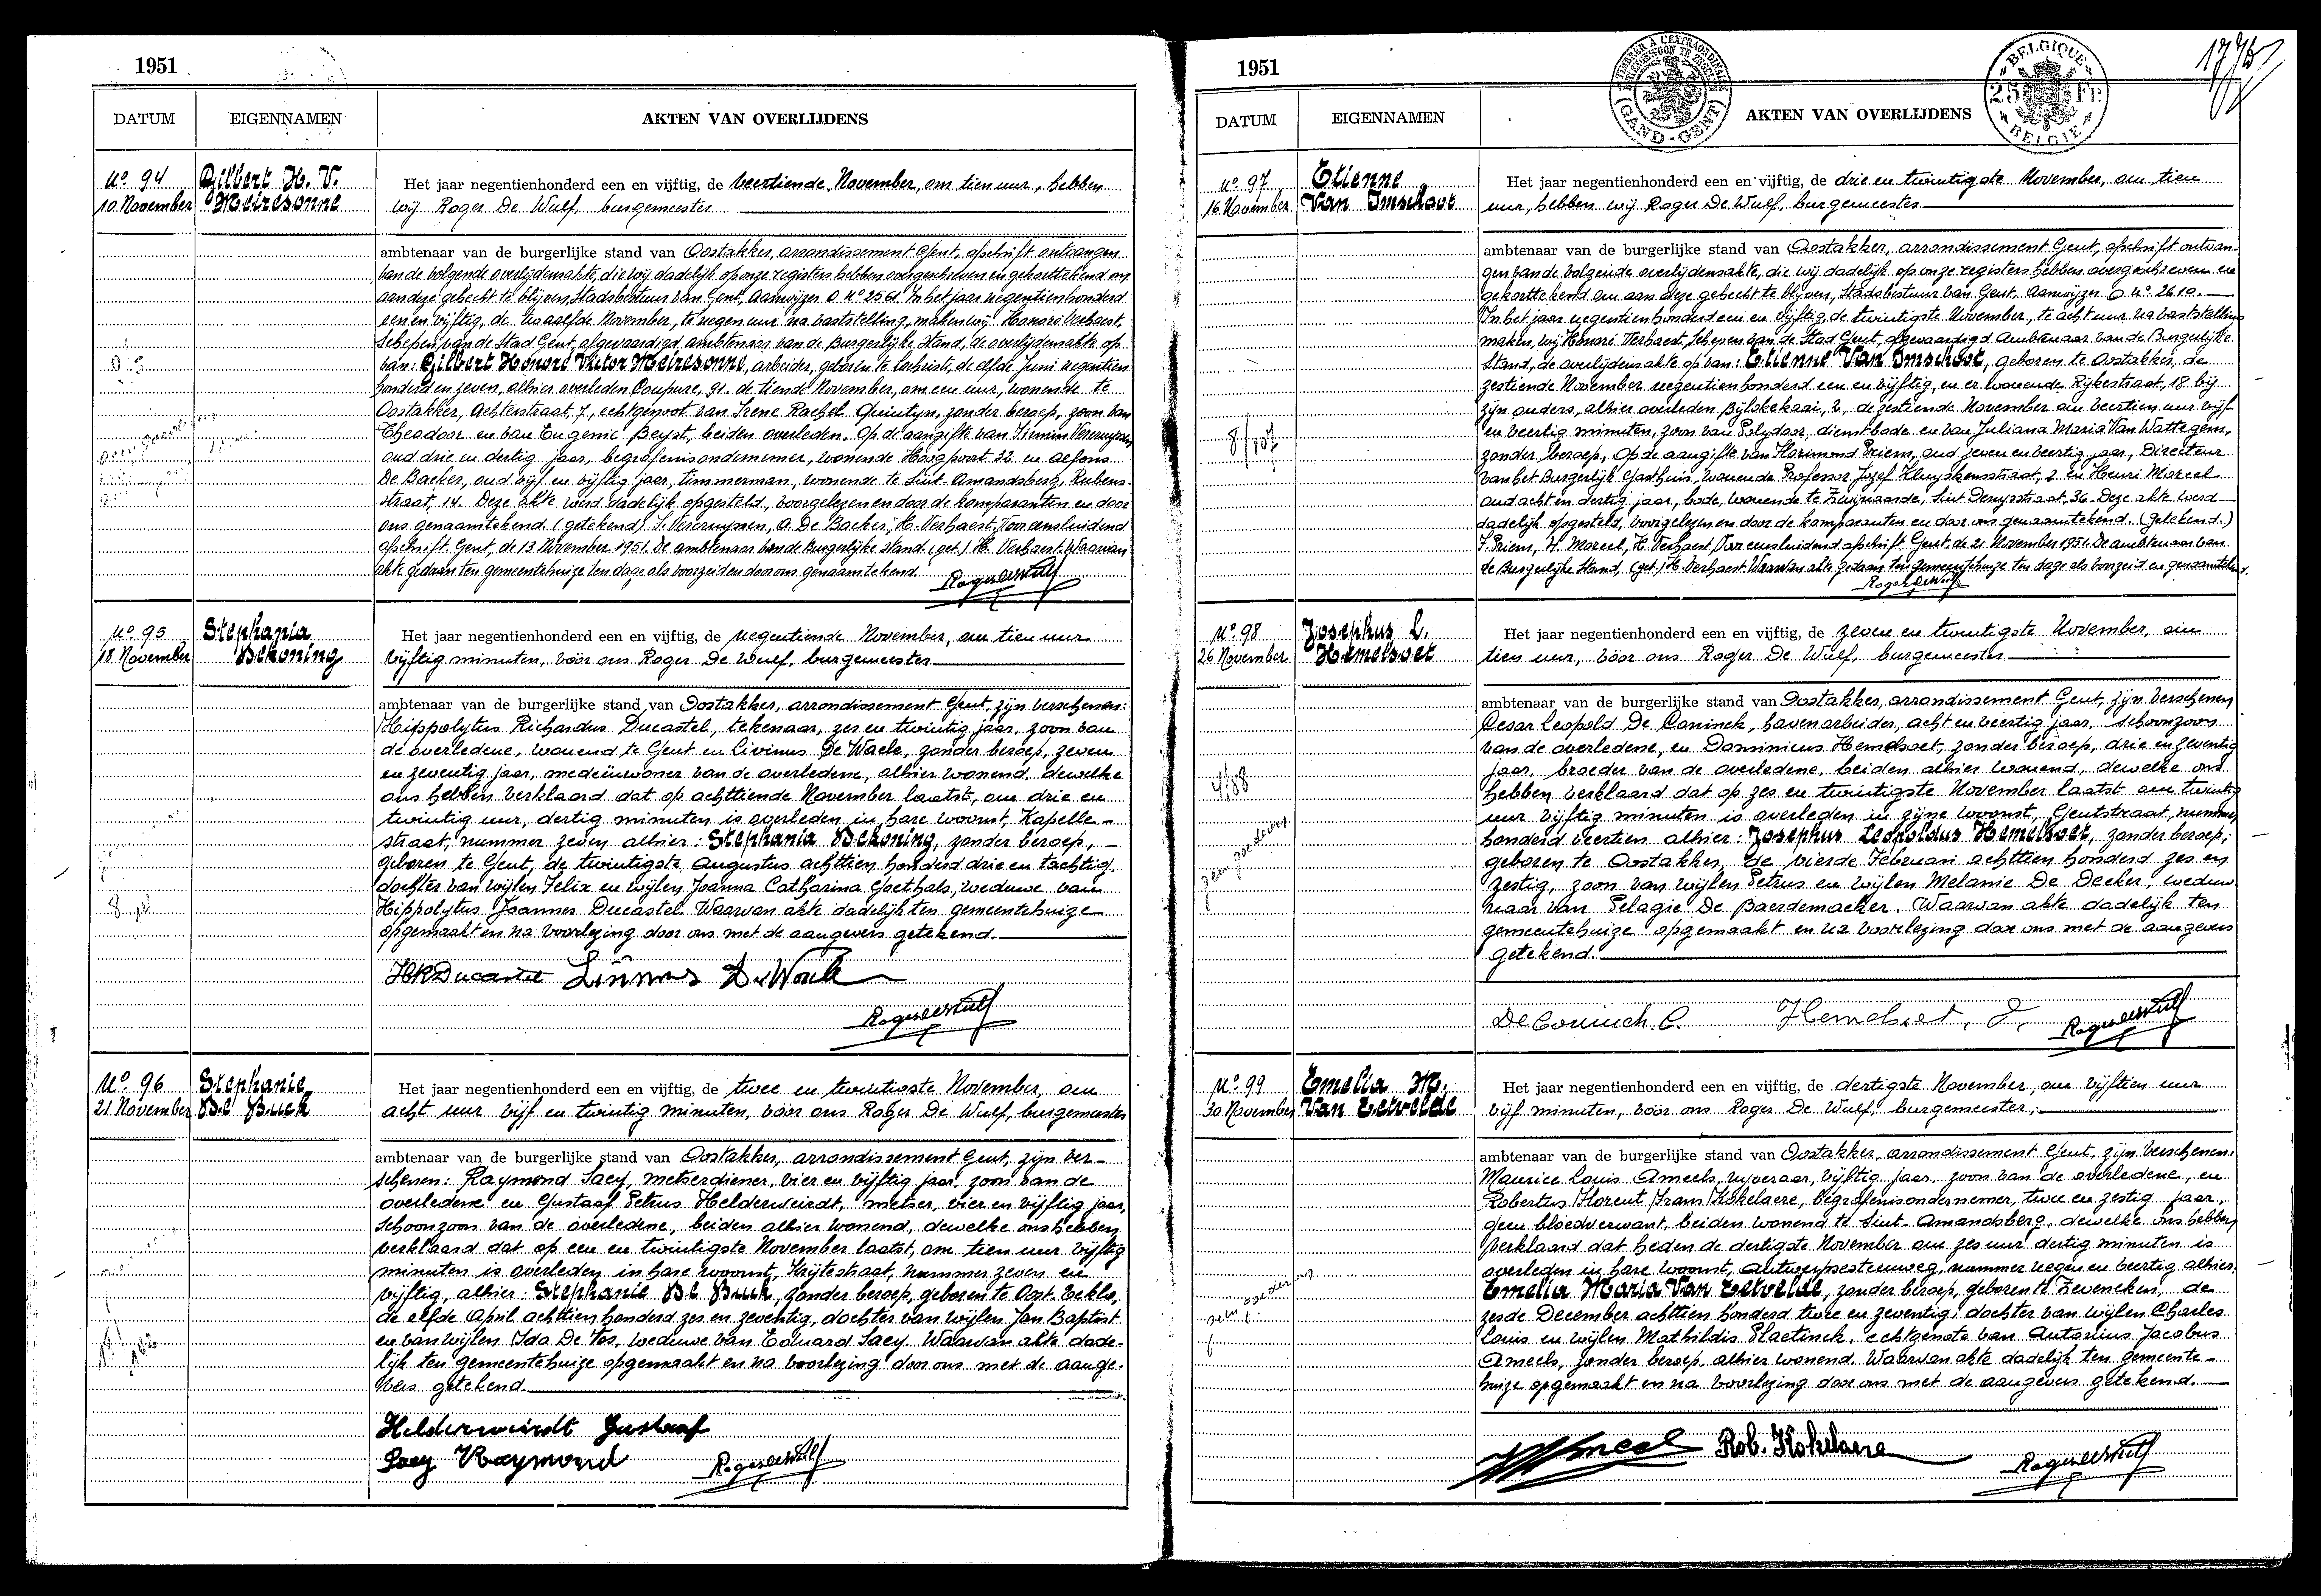 1951
DATUM EIGENNAMEN AKTEN VAN OVERLIJDENS
No 94
10 November
Gilbert H. V.
Meiresonne
Het jaar negentienhonderd een en vijftig, de veertiende November, om tien uur, hebben
wij Roger De Wulf, burgemeester
ambtenaar van de burgerlijke stand van Oostakker, arrondissement Gent, afschrift ontvangen
van de volgende overlijdensakte, die wij dadelijk op onze registers hebben overgeschreven en gekorttekend om
aan deze gehecht te blijven, Stadsbestuur van Gent, Aanwijzer O. No 2561. In het jaar negentienhonderd
een en vijftig, de twaalfde November, te negen uur na vaststelling, maken wij Honoré Verhaest,
Schepen van de Stad Gent, afgevaardigd ambtenaar van de Burgerlijke Stand, de overlijdensakte op
van: Gilbert Honoré Victor Meiresonne, arbeider, geboren te Lochristi, de elfde Juni negentien
honderd en zeven, alhier overleden Coupure, 91. de tiende November, om een uur, wonende te
Oostakker, Achterstraat, 7, echtgenoot van Irene Rachel Quintyn, zonder beroep, zoon van
Theodoor en van Eugenie Beyst, beiden overleden. Op de aangifte van Firmin Vereruysen
oud drie en dertig jaar, begrafenisondernemer, wonende Hoogpoort 32 en Alfons
De Backer, oud vijf en vijftig jaar, timmerman, wonende te Sint-Amandsberg, Rubens-
straat, 14. Deze akte werd dadelijk opgesteld, voorgelezen en door de komparanten en door
ons genaamtekend. (getekend) F. Vereruysen, A. De Backer, H. Verhaest, Voor eensluidend
afschrift. Gent, de 13 November 1951. De ambtenaar van de Burgerlijke Stand. (get.) H. Verhaest. Waarvan
akte gedaan ten gemeentehuize ten dage als voorzeid en door ons genaamtekend.
Roger De Wulf
No 95
18 November
Stephania
Dekoning
Het jaar negentienhonderd een en vijftig, de negentiende November, om tien uur
vijftig minuten, vóór ons Roger De Wulf, burgemeester
ambtenaar van de burgerlijke stand van Oostakker, arrondissement Gent, zijn verschenen:
Hippolytus Richardus Ducastel, tekenaar, zes en twintig jaar, zoon van
de overledene, wonend te Gent en Livinus De Waele, zonder beroep, zeven
en zeventig jaar, medeinwoner van de overledene, alhier wonend, dewelke
ons hebben verklaard dat op achttiende November laatst, om drie en
twintig uur, dertig minuten is overleden in hare woonst, Kapelle-
straat, nummer zeven alhier: Stephania Dekoning, zonder beroep,
geboren te Gent, de twintigste Augustus achttien honderd drie en tachtig,
dochter van wijlen Felix en wijlen Joanna Catharina Goethals, weduwe van
Hippolytus Joannes Ducastel. Waarvan akte dadelijk ten gemeentehuize
opgemaakt en na voorlezing door ons met de aangevers getekend.
HR Ducastel Livinus De Waele
Roger De Wulf
No 96
21 November
Stephanie
De Buck
Het jaar negentienhonderd een en vijftig, de twee en twintigste November, om
acht uur vijf en twintig minuten, vóór ons Roger De Wulf, burgemeester
ambtenaar van de burgerlijke stand van Oostakker, arrondissement Gent, zijn ver-
schenen: Raymond Saey, metserdiener, vier en vijftig jaar, zoon van de
overledene en Gustaaf Petrus Helderweirdt, metser, vier en vijftig jaar,
schoonzoon van de overledene, beiden alhier wonend, dewelke ons hebben
verklaard dat op een en twintigste November laatst, om tien uur vijftig
minuten is overleden in hare woonst, Krijtestraat, nummer zeven en
vijftig, alhier: Stephanie De Buck, zonder beroep, geboren te Oost-Eeklo,
de elfde April achttien honderd zes en zeventig, dochter van wijlen Jan Baptist
en van wijlen Ida De Vos, weduwe van Eduard Saey. Waarvan akte dade-
lijk ten gemeentehuize opgemaakt en na voorlezing door ons met de aange-
vers getekend.
Helderweirdt Gustaaf
Saey Raymond Roger De Wulf
1951
TIMBRE A L'EXTRAORDINAIRE
(GAND-GENT)
BELGIQUE
25 Fr.
BELGIE
DATUM EIGENNAMEN AKTEN VAN OVERLIJDENS
No 97
16 November
Etienne
Van Imschoot
Het jaar negentienhonderd een en vijftig, de drie en twintigste November, om tien
uur, hebben wij Roger De Wulf, burgemeester
ambtenaar van de burgerlijke stand van Oostakker, arrondissement Gent, afschrift ontvan-
gen van de volgende overlijdensakte, die wij dadelijk op onze registers hebben overgeschreven en
gekorttekend om aan deze gehecht te blijven, Stadsbestuur van Gent, Aanwijzer O No 2610.
In het jaar negentienhonderd een en vijftig, de twintigste November, te acht uur na vaststelling
maken, wij Honoré Verhaest, Schepen van de Stad Gent, afgevaardigd Ambtenaar van de Burgerlijke
Stand, de overlijdensakte op van: Etienne Van Imschoot, geboren te Oostakker, de
zestiende November negentienhonderd een en vijftig, en er wonende Rijkestraat, 18 bij
zijn ouders, alhier overleden Bijlokekaai, 2, de zestiende November om veertien uur vijf
en veertig minuten, zoon van Polydoor, dienstbode en van Juliana Maria Van Wattegem,
zonder beroep. Op de aangifte van Florimond Priem, oud zeven en veertig jaar, Directeur
van het Burgerlijk Gasthuis, wonende Professor Jozef Kluyskensstraat, 2 en Henri Moreel
oud acht en dertig jaar, bode, wonende te Zwijnaarde, Sint Denysstraat 36. Deze akte werd
dadelijk opgesteld, voorgelezen en door de komparanten en door ons genaamtekend. (getekend.)
F. Priem, H. Moreel, H. Verhaest, Voor eensluidend afschrift Gent. de 21 November 1951. De ambtenaar van
de Burgerlijke Stand, (get.) H. Verhaest Waarvan akte gedaan ten gemeentehuize ten dage als voorzeid en genaamtekend.
Roger De Wulf
No 98
26 November
Josephus L.
Hemelsoet
Het jaar negentienhonderd een en vijftig, de zeven en twintigste November, om
tien uur, vóór ons Roger De Wulf, burgemeester
ambtenaar van de burgerlijke stand van Oostakker, arrondissement Gent, zijn verschenen
Cesar Leopold De Coninck, havenarbeider, acht en veertig jaar, schoonzoon
van de overledene, en Dominicus Hemelsoet, zonder beroep, drie en zeventig
jaar, broeder van de overledene, beiden alhier wonend, dewelke ons
hebben verklaard dat op zes en twintigste November laatst om twintig
uur vijftig minuten is overleden in zijne woonst, Gentstraat, nummer
honderd veertien alhier: Josephus Leopoldus Hemelsoet, zonder beroep,
geboren te Oostakker, de vierde Februari achttien honderd zes en
zestig, zoon van wijlen Petrus en wijlen Melanie De Decker, weduw
naar van Pelagie De Baerdemaeker. Waarvan akte dadelijk ten
gemeentehuize opgemaakt en na voorlezing door ons met de aangevers
getekend.
De Coninck C. Hemelsoet, D. Roger De Wulf
No 99
30 November
Emelia M.
Van Eetvelde
Het jaar negentienhonderd een en vijftig, de dertigste November, om vijftien uur
vijf minuten, vóór ons Roger De Wulf, burgemeester,
ambtenaar van de burgerlijke stand van Oostakker, arrondissement Gent, zijn verschenen:
Maurice Louis Ameels, ijveraar, vijftig jaar, zoon van de overledene, en
Robertus Florent Frans Kokelaere, begrafenisondernemer, twee en zestig jaar,
geen bloedverwant, beiden wonend te Sint-Amandsberg, dewelke ons hebben
verklaard dat heden de dertigste November om zes uur dertig minuten is
overleden in hare woonst, Antwerpsesteenweg, nummer negen en veertig alhier,
Emelia Maria Van Eetvelde, zonder beroep, geboren te Zeveneken, de
zesde December achttien honderd twee en zeventig, dochter van wijlen Charles
Louis en wijlen Mathildis Plaetinck, echtgenote van Antonius Jacobus
Ameels, zonder beroep, alhier wonend. Waarvan akte dadelijk ten gemeente-
huize opgemaakt en na voorlezing door ons met de aangevers getekend.
Ameels Rob. Kokelaere Roger De Wulf